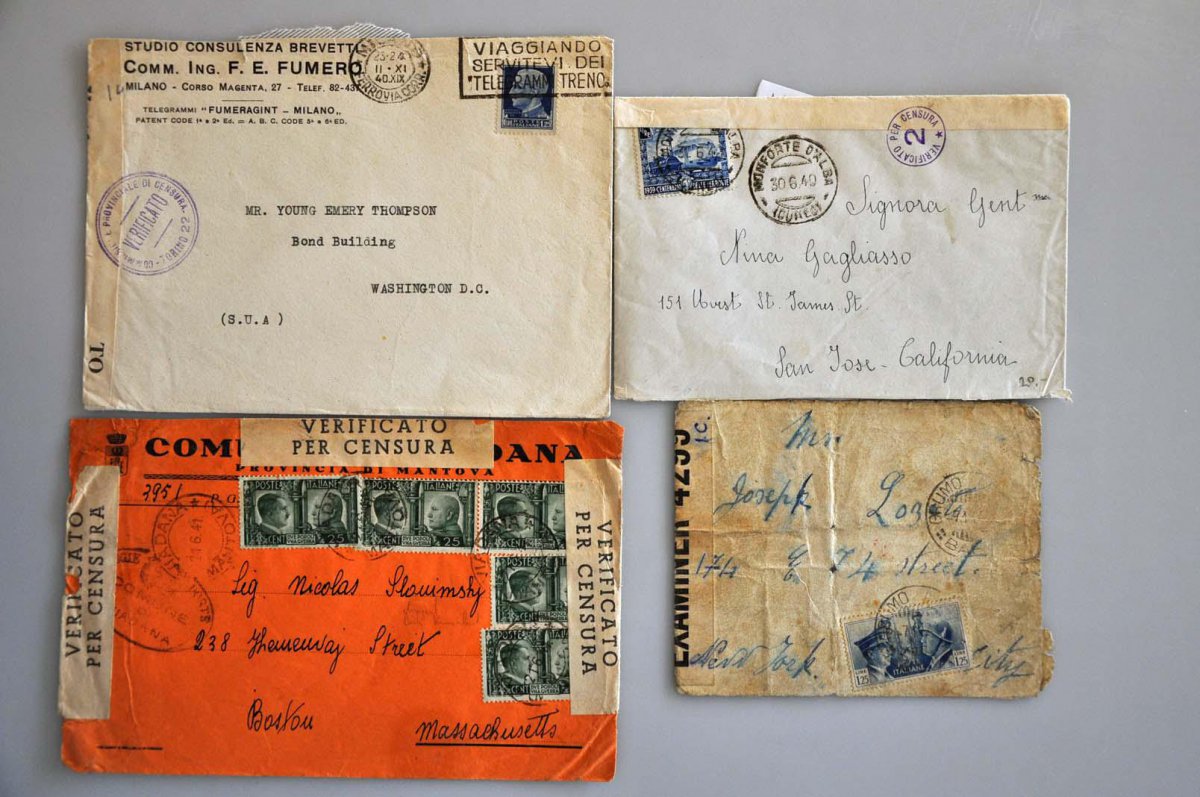 STUDIO CONSULENZA BREVETTI
COMM. ING. F. E. FUMERO
MILANO - CORSO MAGENTA, 27 - TELEF. 82-43
TELEGRAMMI "FUMERAGINT - MILANO„
PATENT CODE 1ª e 2ª ED. = A. B. C. CODE 5ª e 6ª ED.
23-24
11 · XI
40.XIX
FERROVIA CORR.
VIAGGIANDO
SERVITEVI DEI
"TELEGRAMMI TRENO"
PROVINCIALE DI CENSURA
VERIFICATO
TORINO 22
MR. YOUNG EMERY THOMPSON
Bond Building
WASHINGTON D.C.
(S.U.A )
TO
MONFORTE D'ALBA
30.6.40
(CUNEO)
VERIFICATO PER CENSURA
2
Signora Gent
Nina Gagliasso
151 Uvest St. James St.
San Jose - California
20.-
VERIFICATO
PER CENSURA
COM DANA
PROVINCIA DI MANTOVA
3951
VERIFICATO
PER CENSURA
VERIFICATO
PER CENSURA
VIADANA
MANTOVA
POSTE ITALIANE
25
CENT
Sig Nicolas Slouimsky
238 Hemenvaj Street
Boston
Massachusetts
EXAMINER 4299
I.C.
Mr.
Joseph
174 E 74 street.
New York. City
GRUMO
LIRE
1,25
ITALIANE
1,25